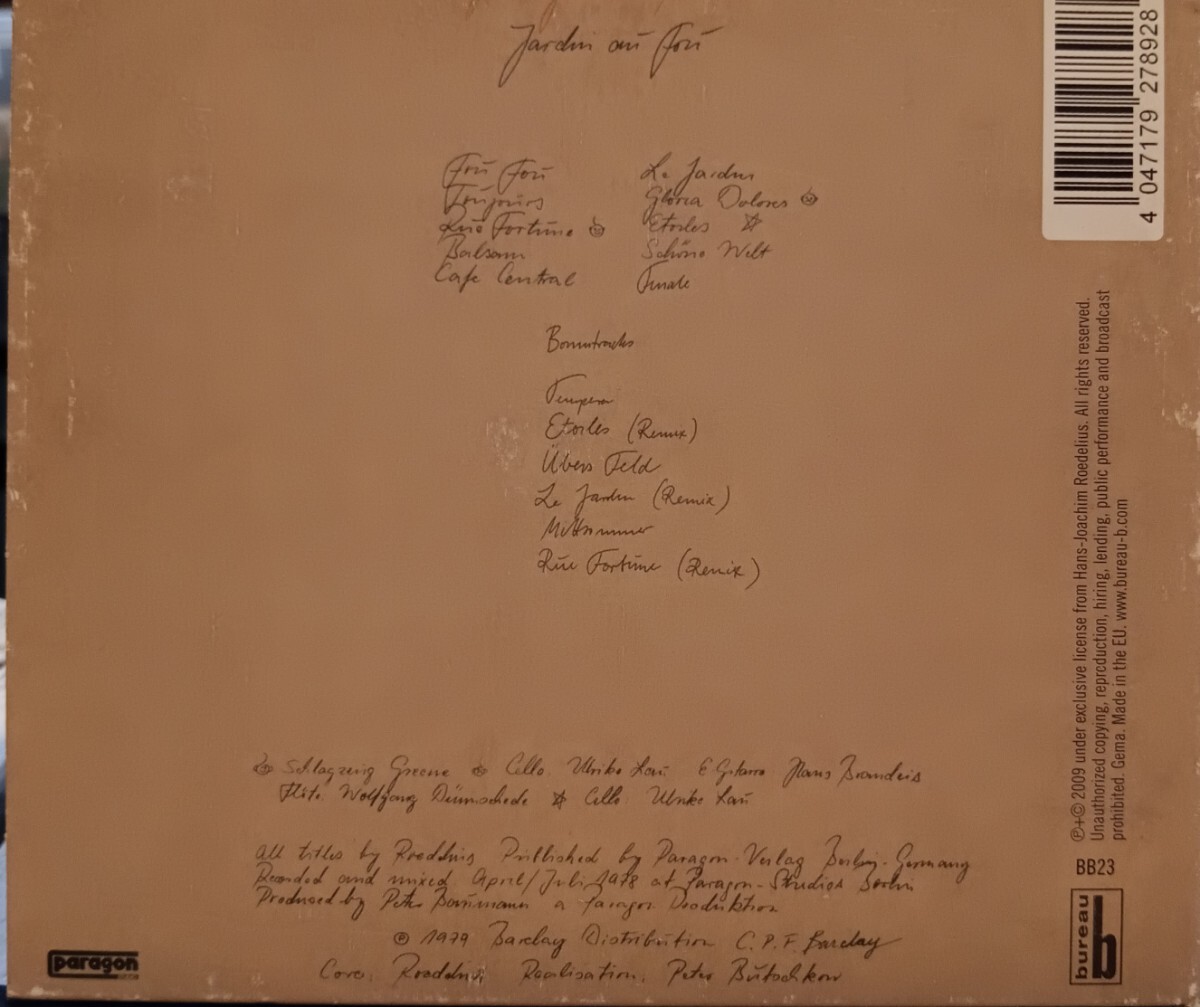 Jardin au Fou
Fou Fou
Toujours
Rue Fortune
Balsam
Cafe Central
Le Jardin
Gloria Dolores
Etoiles
Schöne Welt
Finale
Bonustracks
Tempera
Etoiles (Remix)
Übers Feld
Le Jardin (Remix)
Mittsommer
Rue Fortune (Remix)
Schlagzeug Greene Cello: Ulrike Lau E Gitarre Hans Brandeis
Flöte: Wolfgang Cello: Ulrike Lau
All titles by Roedelius, Published by Paragon-Verlag Berlin-Germany
Recorded and mixed April/Juli 1978 at Paragon-Studios Berlin
Produced by Peter Baumann a Paragon Produktion
© 1979 Barclay Distribution C.P.F. Barclay
Cover: Roedelius Realisation: Peter Butschkow
paragon
4 047179 278928
℗+© 2009 under exclusive license from Hans-Joachim Roedelius. All rights reserved.
Unauthorized copying, reproduction, hiring, lending, public performance and broadcast
prohibited. Gema. Made in the EU. www.bureau-b.com
BB23
bureau b